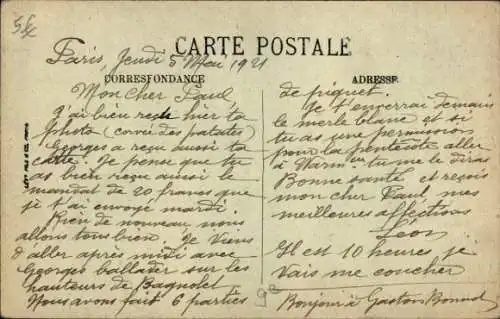 CARTE POSTALE
Paris, Jeudi 5 Mai 1921
CORRESPONDANCE
ADRESSE
Mon cher Paul
J'ai bien reçu hier ta
photo (corvée des patates)
Georges a reçu aussi ta
carte. Je pense que tu
as bien reçu aussi le
mandat de 20 francs que
je t'ai envoyé mardi.
Rien de nouveau nous
allons tous bien. Je viens
d'aller après midi avec
Georges ballader sur les
hauteurs de Bagnolet
Nous avons fait 6 parties
de piquet.
Je t'enverrai demain
le merle blanc et si
tu as une permission
pour la pentecôte aller
à tu me le diras
Bonne santé et reçois
mon cher Paul, mes
meilleures affections
Léon
Il est 10 heures je
vais me coucher
Bonjour à Gaston